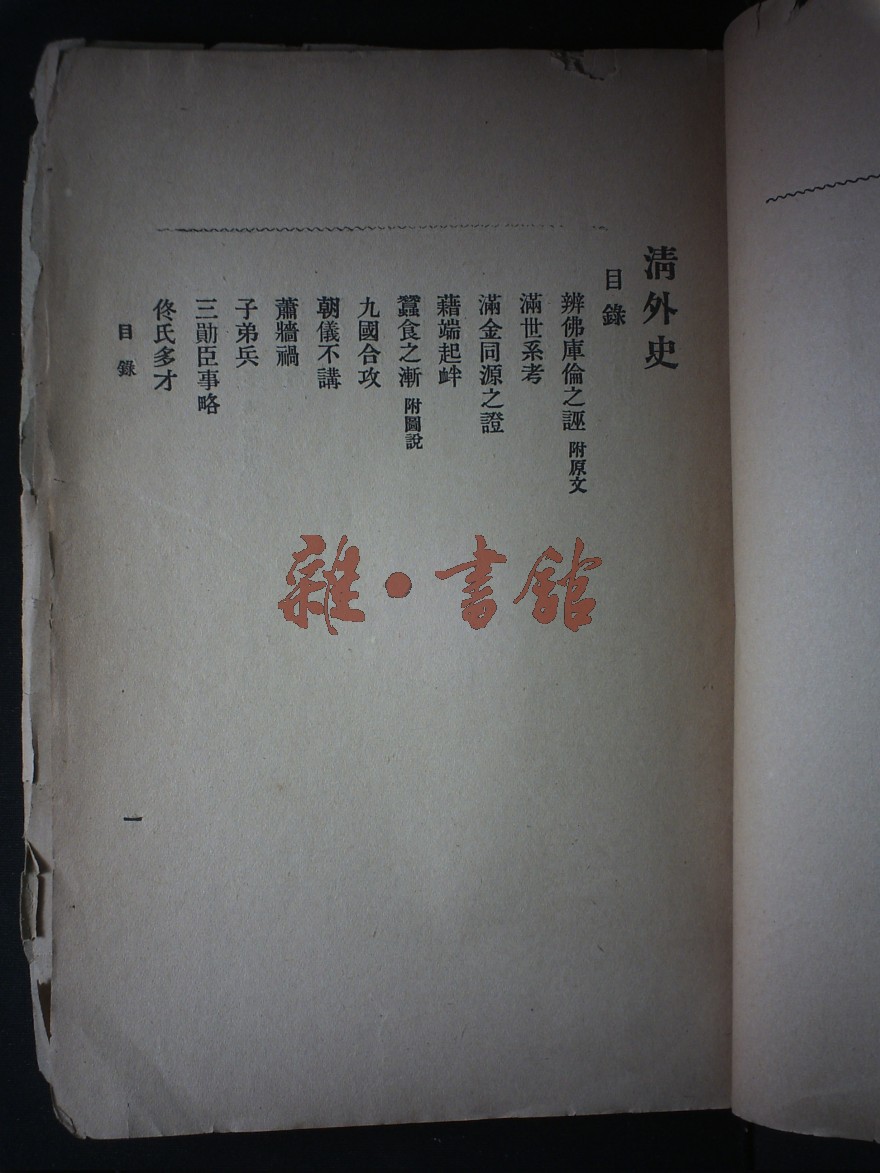 清外史
目錄
辨佛庫倫之誣 附原文
滿世系考
滿金同源之證
藉端起衅
蠶食之漸 附圖說
九國合攻
朝儀不講
蕭牆禍
子弟兵
三勛臣事略
佟氏多才
目錄
一
雜·書館